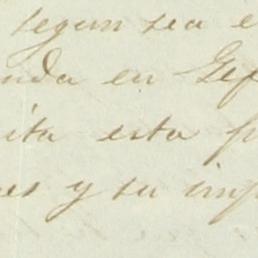 segun sea e
nda en Gef
ita esta f
es y su imp